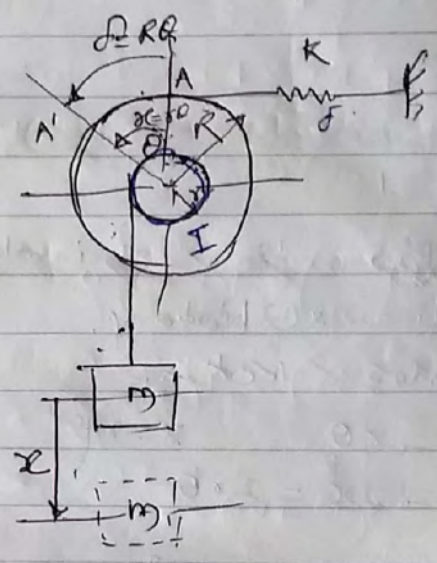 δ = Rθ
K
A
A'
x=rθ
θ
R
δ
r
I
m
x
m